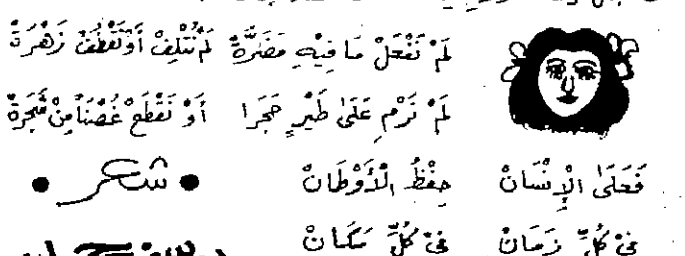 لَمْ نَفْعَلْ مَا فِيْهِ مَضَرَّةْ لَمْ نُتْلِفْ أَوْ نَقْطُفْ زَهْرَةْ
لَمْ نَرْمِ عَلَىٰ طَيْرٍ حَجَرا أَوْ نَقْطَعْ غُصْنَاً مِنْ شَجَرَةْ
فَعَلَىٰ الْإِنْسَانْ حِفْظُ الْأَوْطَانْ
• شعر •
فِيْ كُلِّ زَمَانْ فِيْ كُلِّ مَكَانْ